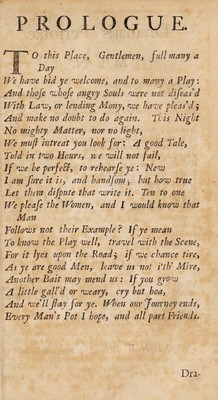 PROLOGUE.
TO this Place, Gentlemen, full many a
Day
We have bid ye welcome, and to many a Play:
And those whose angry Souls were not diseas'd
With Law, or lending Mony, we have pleas'd;
And make no doubt to do again. This Night
No mighty Matter, nor no light,
We must intreat you look for: A good Tale,
Told in two Hours, we will not fail,
If we be perfect, to rehearse ye: New
I am sure it is, and handsom; but how true
Let them dispute that write it. Ten to one
We please the Women, and I would know that
Man
Follows not their Example? If ye mean
To know the Play well, travel with the Scene,
For it lyes upon the Road; if we chance tire,
As ye are good Men, leave us not i'th' Mire,
Another Bait may mend us: If you grow
A little gall'd or weary, cry but hoa,
And we'll stay for ye. When our Journey ends,
Every Man's Pot I hope, and all part Friends.
Dra-